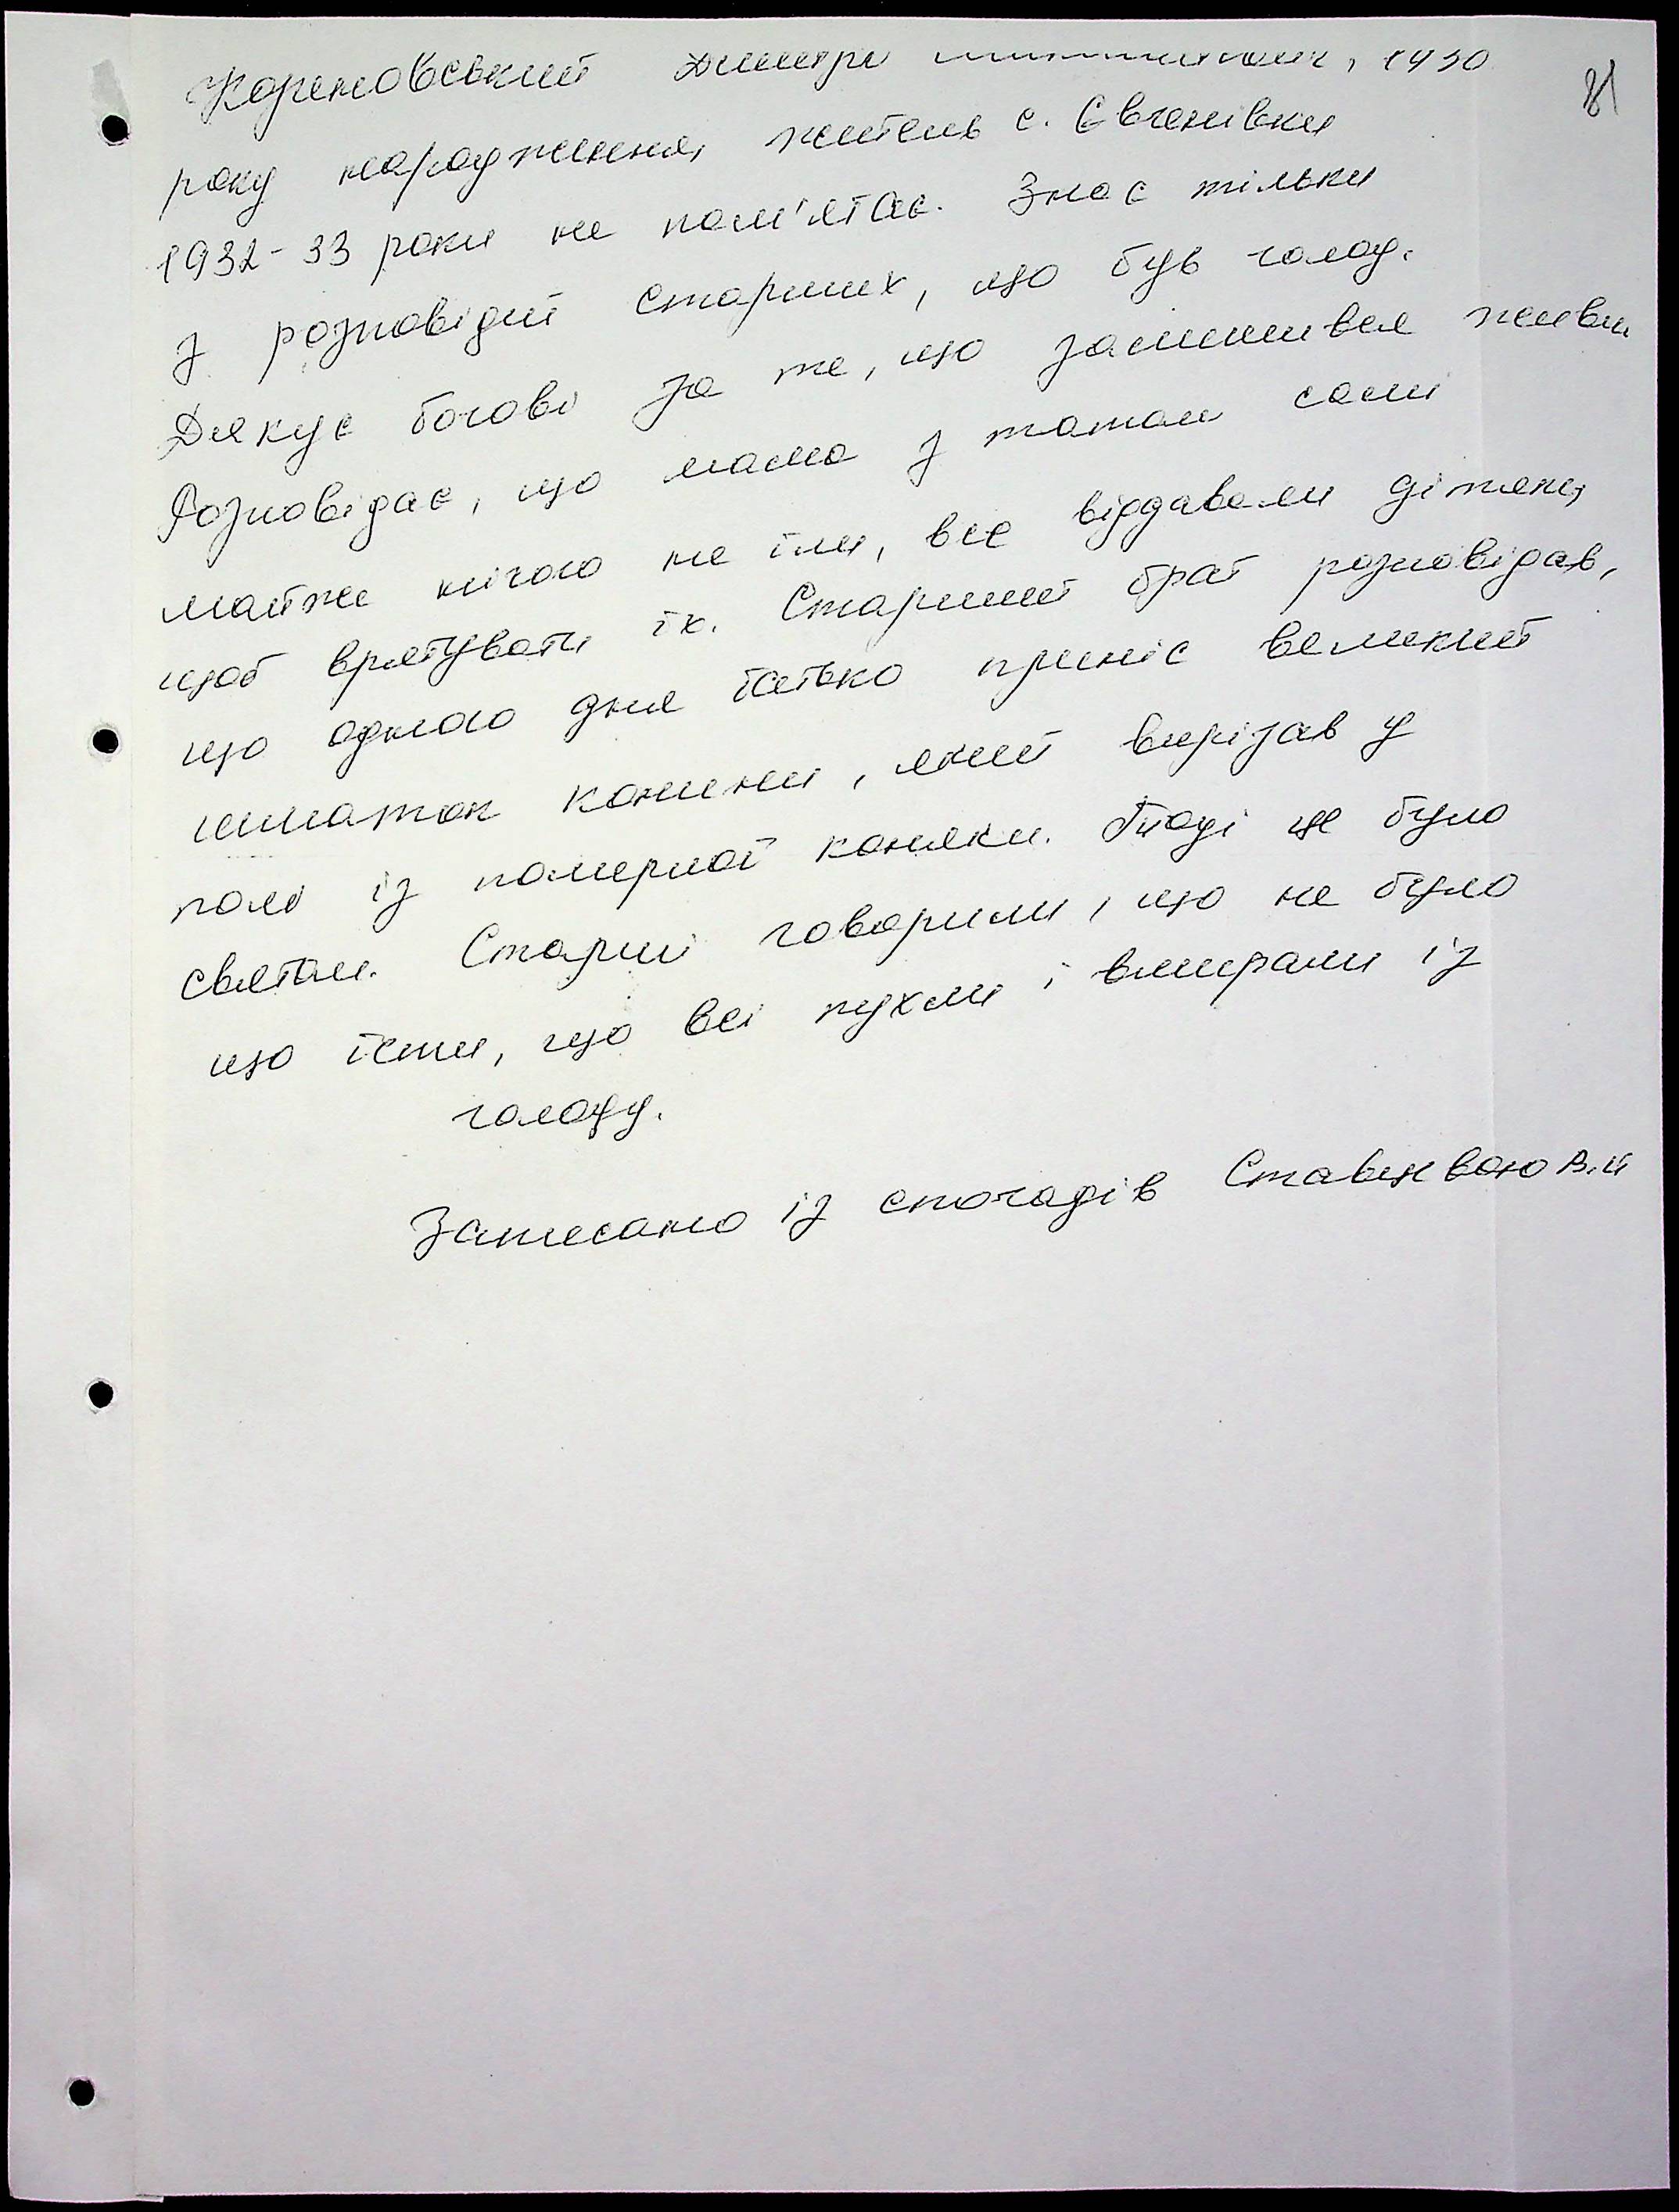 81
Кореновський Дмитро , 1930
року народження, житель с. Євгенівки
1932-33 роки не пам'ятає. Знає тільки
з розповідей старших, що був голод.
Дякує богові за те, що залишився живим
Розповідає, що мама з татом самі
майже нічого не їли, все віддавали дітям,
щоб врятувати їх. Старший брат розповідав,
що одного дня батько приніс великий
шматок конини, який вирізав у
полі із померлої коняки. Тоді це було
святом. Старші говорили, що не було
що їсти, що всі пухли і вмирали із
голоду.
Записано із спогадів